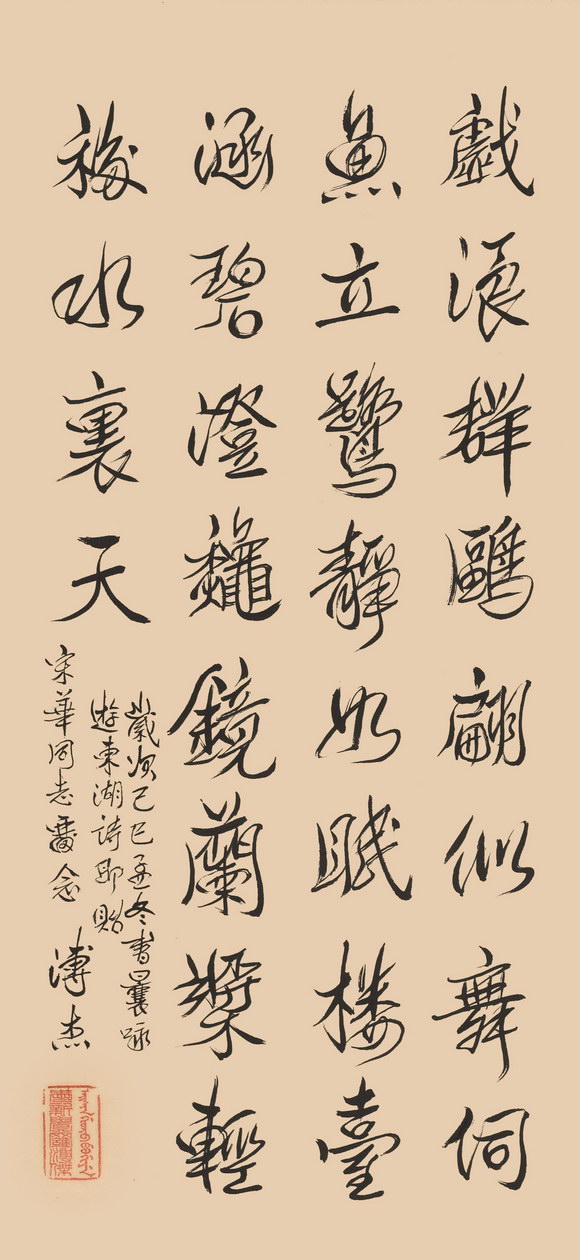 戲浪群鷗翩似舞伺
魚立鷺靜如眠楼臺
涵碧澄龝鏡蘭槳輕
移水裏天
歲次己巳孟冬書曩咏
遊東湖詩即貽
宋華同志留念
溥杰